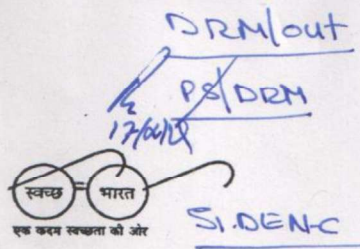 DRM/out
PS/DRM
स्वच्छ भारत
एक कदम स्वच्छता की ओर
Sr.DEN-C